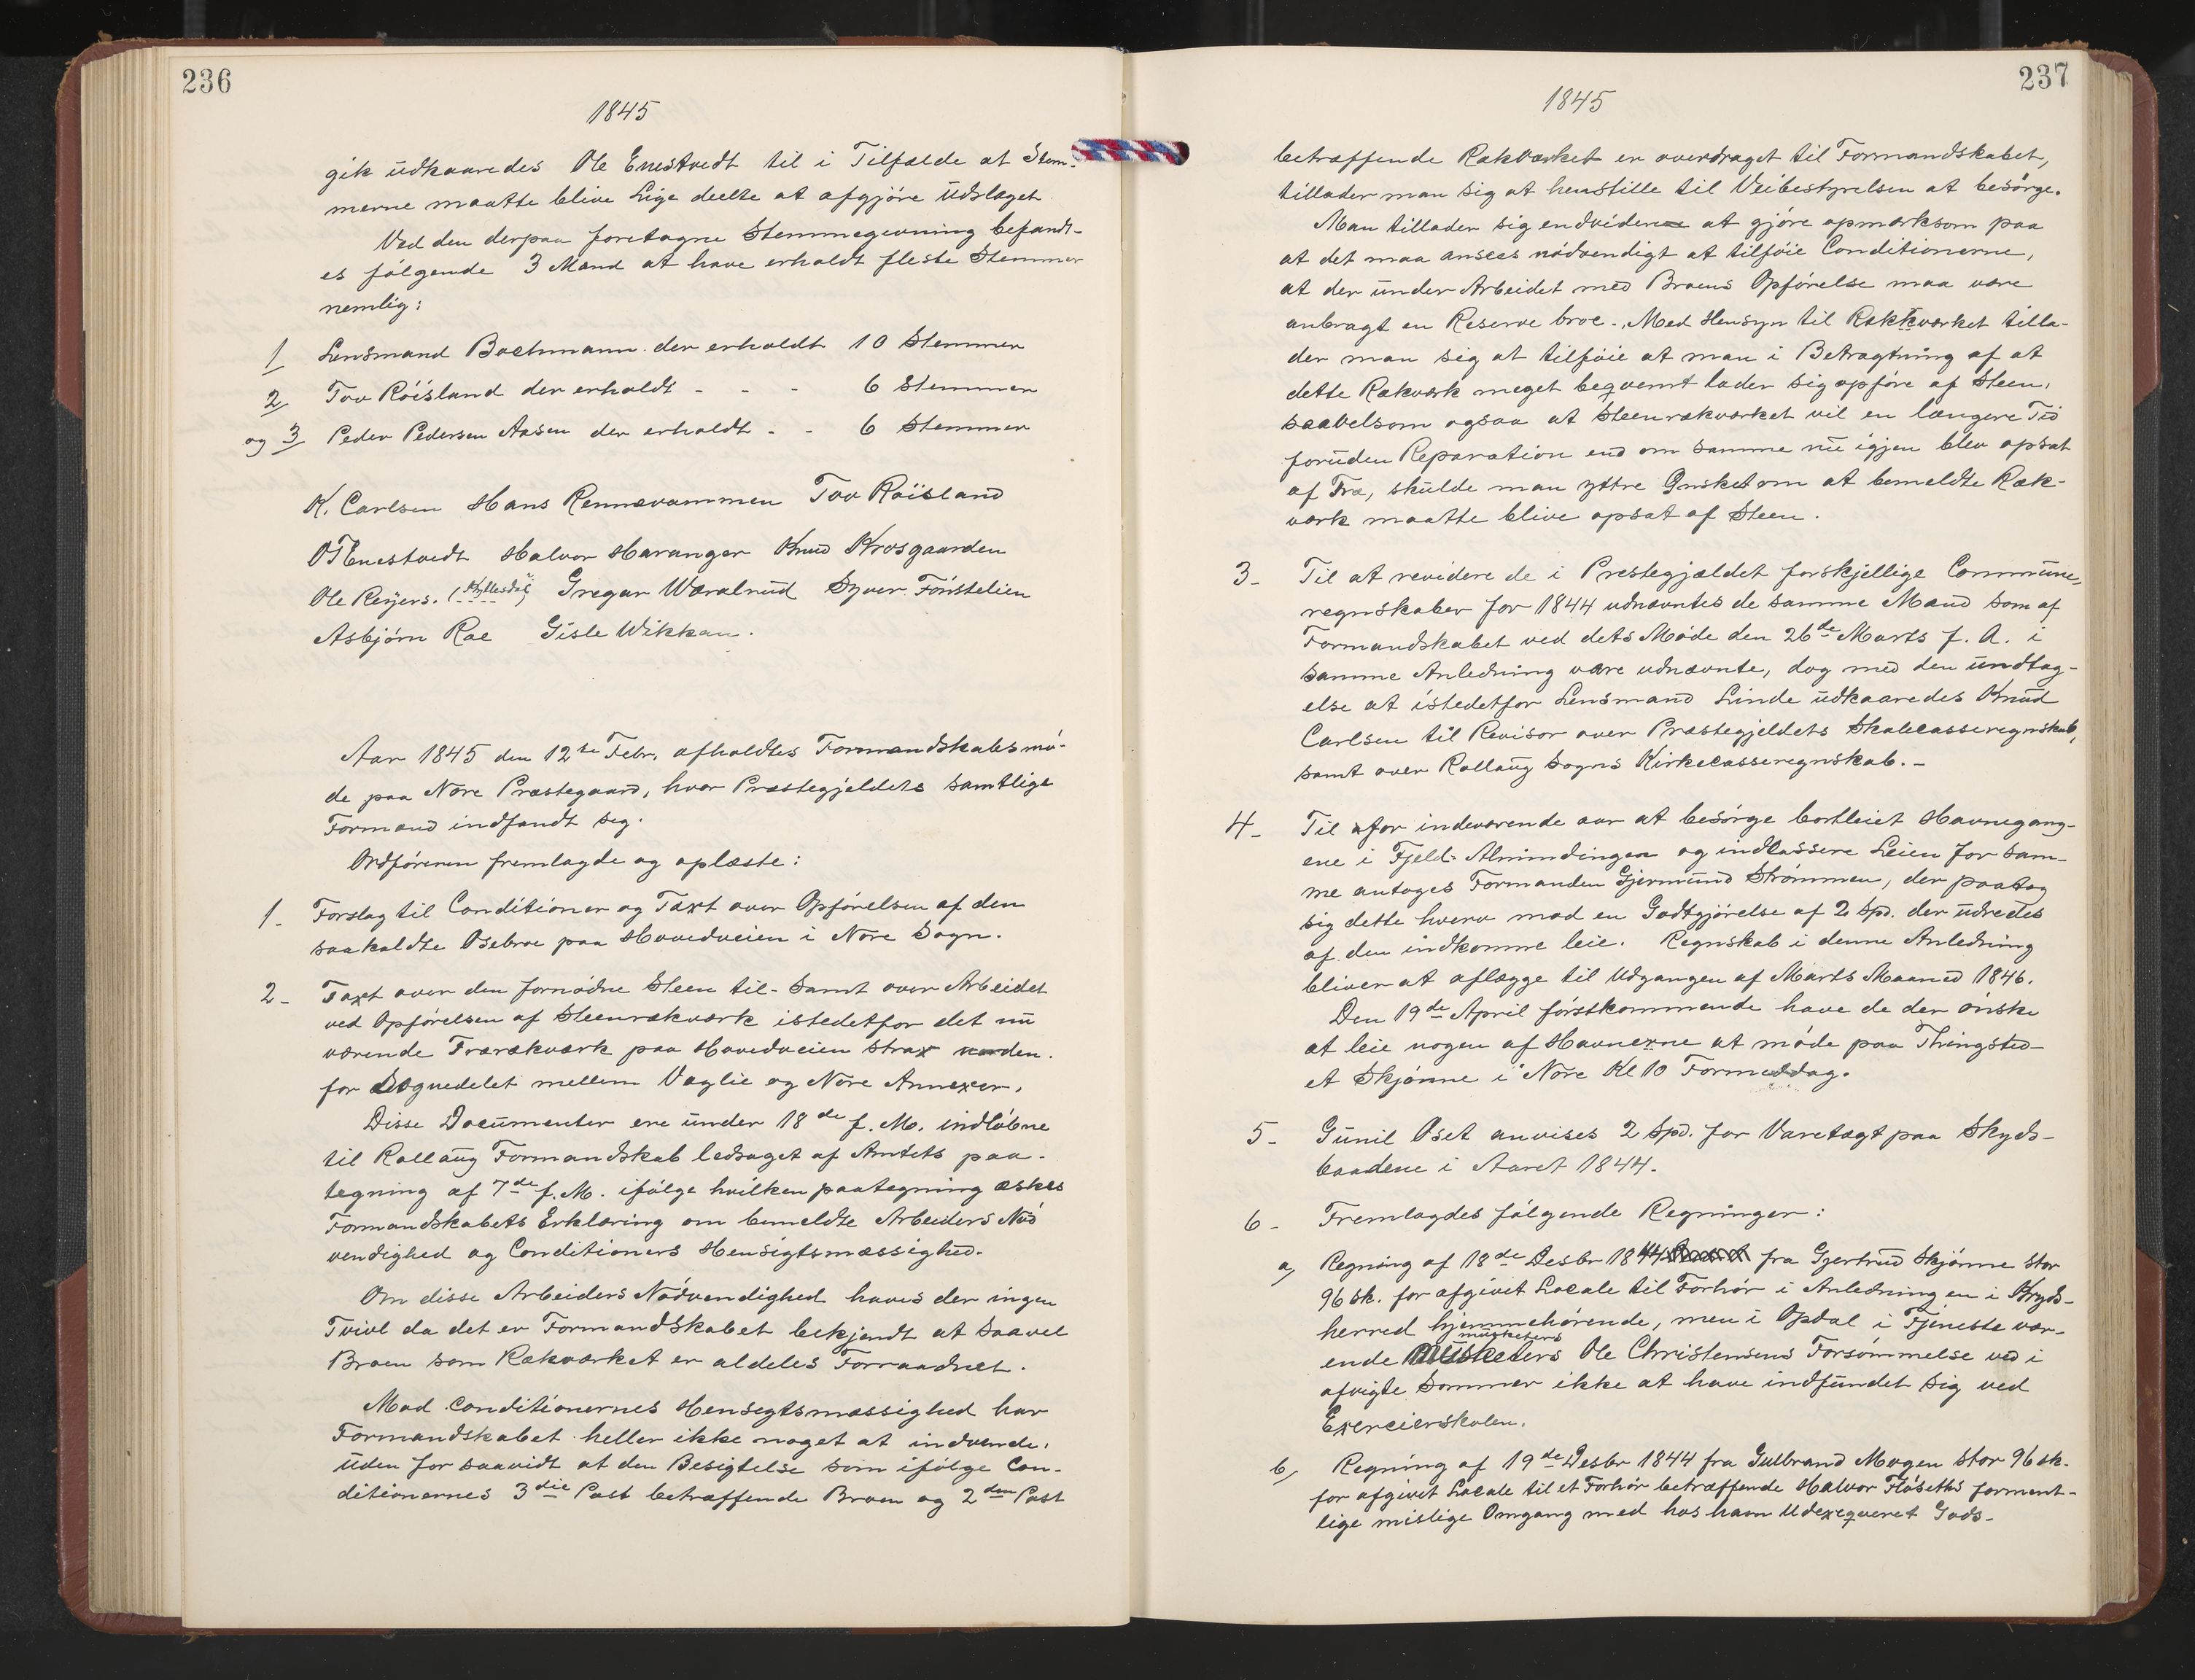 236
1845
gik udkaaredes Ole Enestvedt til i Tilfælde at Stem-
merne maatte blive Lige deelte at afgjøre Udslaget
Ved den derpaa foretagne Stemmegivning befandt-
es følgende 3 Mænd at have erholdt fleste Stemmer
nemlig:
1 Lensmand Bachmann der erholdt 10 Stemmer
2 Tov Röisland der erholdt - - - 6 Stemmer
og 3 Peder Pedersen Aasen der erholdt - - 6 Stemmer
K. Carlsen Hans Rennevammen Tov Roïsland
O Enestvedt Halvor Haranger Knud Krosgaarden
Ole Reijers. (Kyllesdal) Gregar Wæralrud Syver Fönstelien
Asbjørn Roe Gisle Wikkan.
Aar 1845 den 12te Febr. afholdtes Formandskabsmö-
de paa Nore Præstegaard, hvor Præstegjeldets samtlige
Formænd indfandt sig.
Ordføreren fremlagde og oplæste:
1. Forslag til Conditioner og Taxt over Opførelsen af den
saakaldte Osebroe paa Hovedveien i Nore Sogn.
2- Taxt over den fornødne Steen til- samt over Arbeidet
ved Opførelsen af Steenrækværk istedetfor det nu
værende Trærækværk paa Hovedveien strax norden.
for Sognedelet mellem Væglie og Nore Annexer.
Disse Documenter ere under 18de f. M. indløbne
til Rollaug Formandskab ledsaget af Amtets paa-
tegning af 7de f. M. ifølge hvilken paategning æskes
Formandskabets Erklæring om bemeldte Arbeiders Nød
vendighed og Conditioners Hensigtsmæssighed.
Om disse Arbeiders Nødvendighed haves der ingen
Tvivl da det er Formandskabet bekjendt at saavel
Broen som Rækværket er aldeles Forraadnet.
Mod Conditionernes Hensegtsmæssighed har
Formandskabet heller ikke noget at indvende,
uden for saavidt at den Besigtelse som ifølge Con-
ditionernes 3die Post betræffende Broen og 2den Post
237
1845
betræffende Rækværket er overdraget til Formandskabet,
tillader man sig at henstille til Veibestyrelsen at besørge.
Man tillader sig endvidere at gjöre opmærksom paa
at det maa ansees nödvendigt at tilföie Conditionerne,
at der under Arbeidet med Broens Opførelse maa være
anbragt en Reserve broe. Med Hensyn til Rækkværket tilla-
der man sig at tilføie at man i Betragtning af at
dette Rækværk meget beqvemt lader sig opføre af Steen,
saavelsom ogsaa at Steenrækværket vil en længere Tid
foruden Reparation end om samme nu igjen blev opsat
af Træ, skulde man yttre Ønsket om at bemeldte Ræk-
værk maatte blive opsat af Steen.
3- Til at revidere de i Prestegjældet forskjellige Commune,
regnskaber for 1844 udnævntes de samme Mænd som af
Formandskabet ved dets Møde den 26de Marts f. A. i
samme Anledning vare udnævnte, dog med den undtag-
else at istedetfor Lensmand Linde udkaaredes Knud
Carlsen til Revisor over Præstegjeldets Skolecasseregnskab,
samt over Rollaug Sogns Kirkecasseregnskab. -
4- Til for indeværende aar at besørge bortleiet Havnegang-
ene i Fjeld-Almindingen og indkassere Leien for sam-
me antoges Formanden Gjermund Strømmen, der paatog
sig dette hverv mod en Godtgjørelse af 2 Spd. der udredes
af den indkomne leie. Regnskab i denne Anledning
bliver at aflægge til Udgangen af Marts Maaned 1846.
Den 19de April førstkommende have de der ønske
at leie nogen af Havnerne at møde paa Thingsted-
et Skjønne i Nore Kl 10 Formiddag.
5- Gunil Oset anvises 2 Spd. for Varetægt paa Skyds-
baadene i Aaret 1844.
6- Fremlagdes følgende Regninger:
a, Regning af 18de Desbr 1844 fra Gjertrud Skjønne stor
96 sk. for afgivet Locale til Forhør i Anledning en i Kryds-
herred hjemmehørende, men i Opdal i Tjeneste vær-
musketers
ende Musketers Ole Christensens Forsømmelse ved i
afvigte Sommer ikke at have indfundet sig ved
Exercierskolen.
b, Regning af 19de Desbr 1844 fra Gulbrand Mogen stor 96 sk.
for afgivet Locale til et Forhør betræffende Halvor Fløseths forment-
lige mislige Omgang med hos ham Udexeqveret Gods-